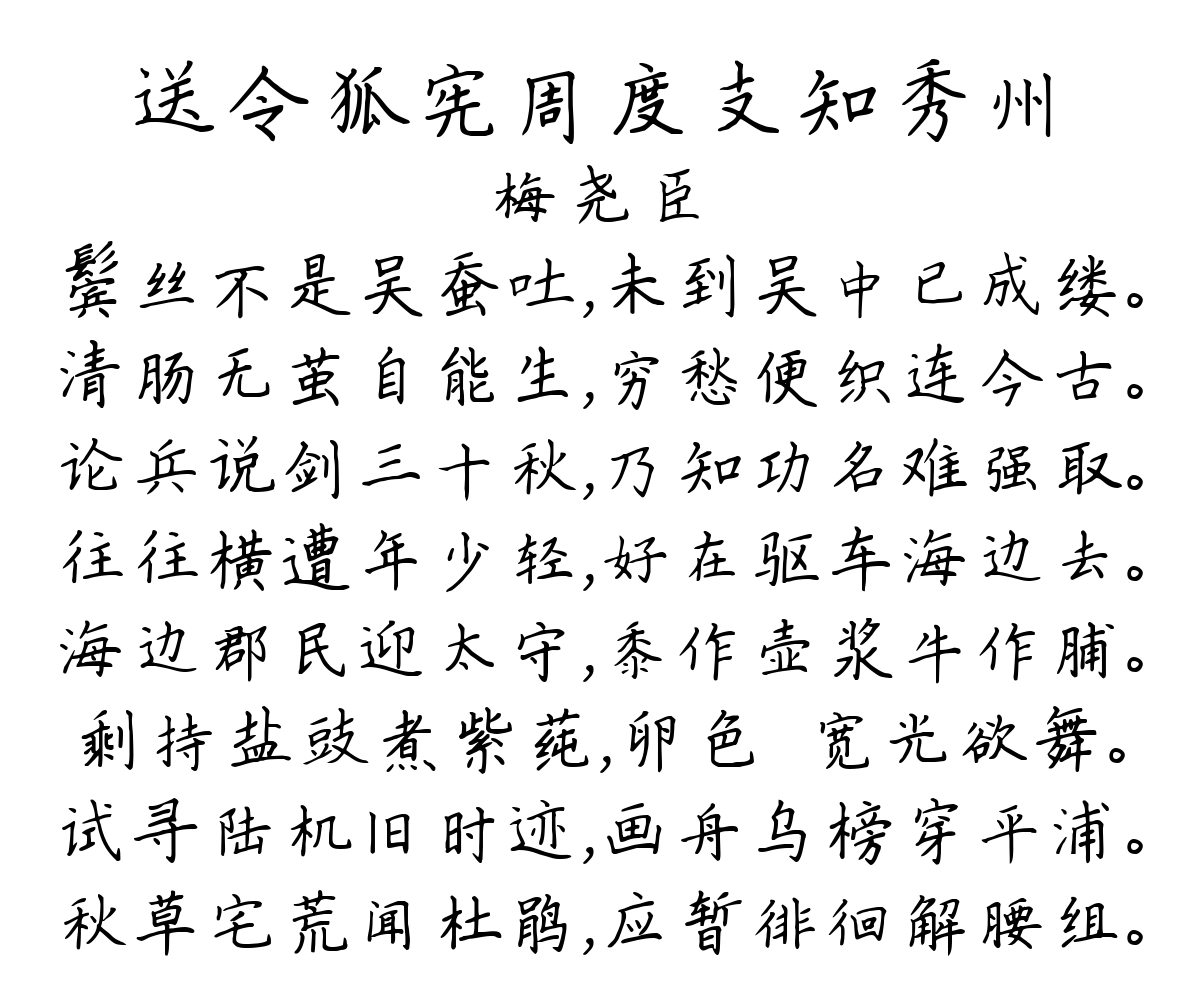 送令狐宪周度支知秀州
梅尧臣
鬓丝不是吴蚕吐,未到吴中已成缕。
清肠无茧自能生,穷愁便织连今古。
论兵说剑三十秋,乃知功名难强取。
往往横遭年少轻,好在驱车海边去。
海边郡民迎太守,黍作壶浆牛作脯。
剩持盐豉煮紫莼,卵色 宽光欲舞。
试寻陆机旧时迹,画舟乌榜穿平浦。
秋草宅荒闻杜鹃,应暂徘徊解腰组。